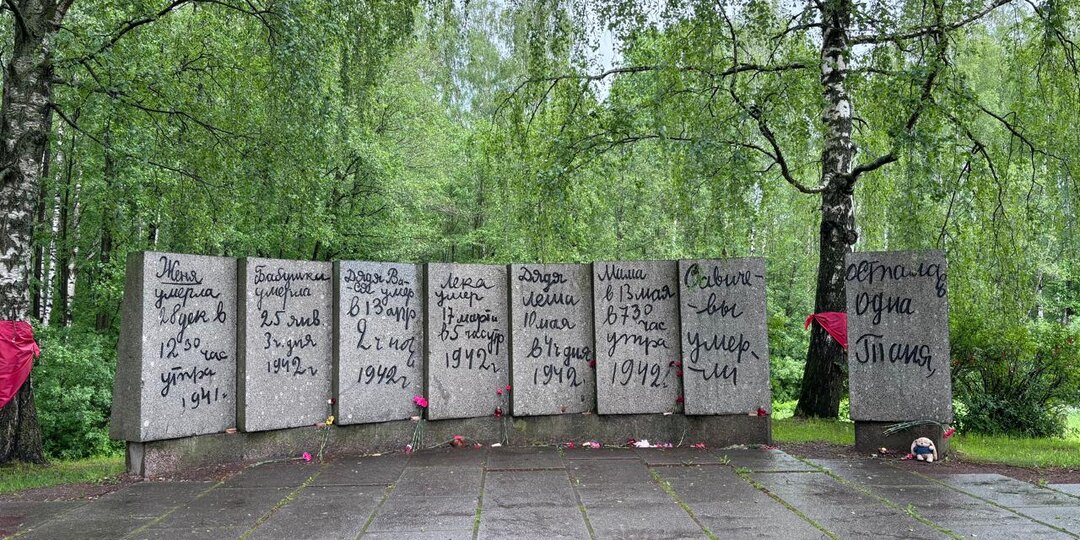 Женя
умерла
28 дек в
12 30 час
утра
1941 г.
Бабушка
умерла
25 янв
3 ч. дня
1942 г.
Дядя Ва-
ся умер
в 13 апр
2 ч ночь
1942 г
Лека
умер
17 марта
в 5 час утр
1942 г
Дядя
Леша
10 мая
в 4 ч дня
1942 г
Мама
в 13 мая
в 7 30
час
утра
1942 г
Савиче-
-вы
умер-
-ли
осталась
одна
Таня